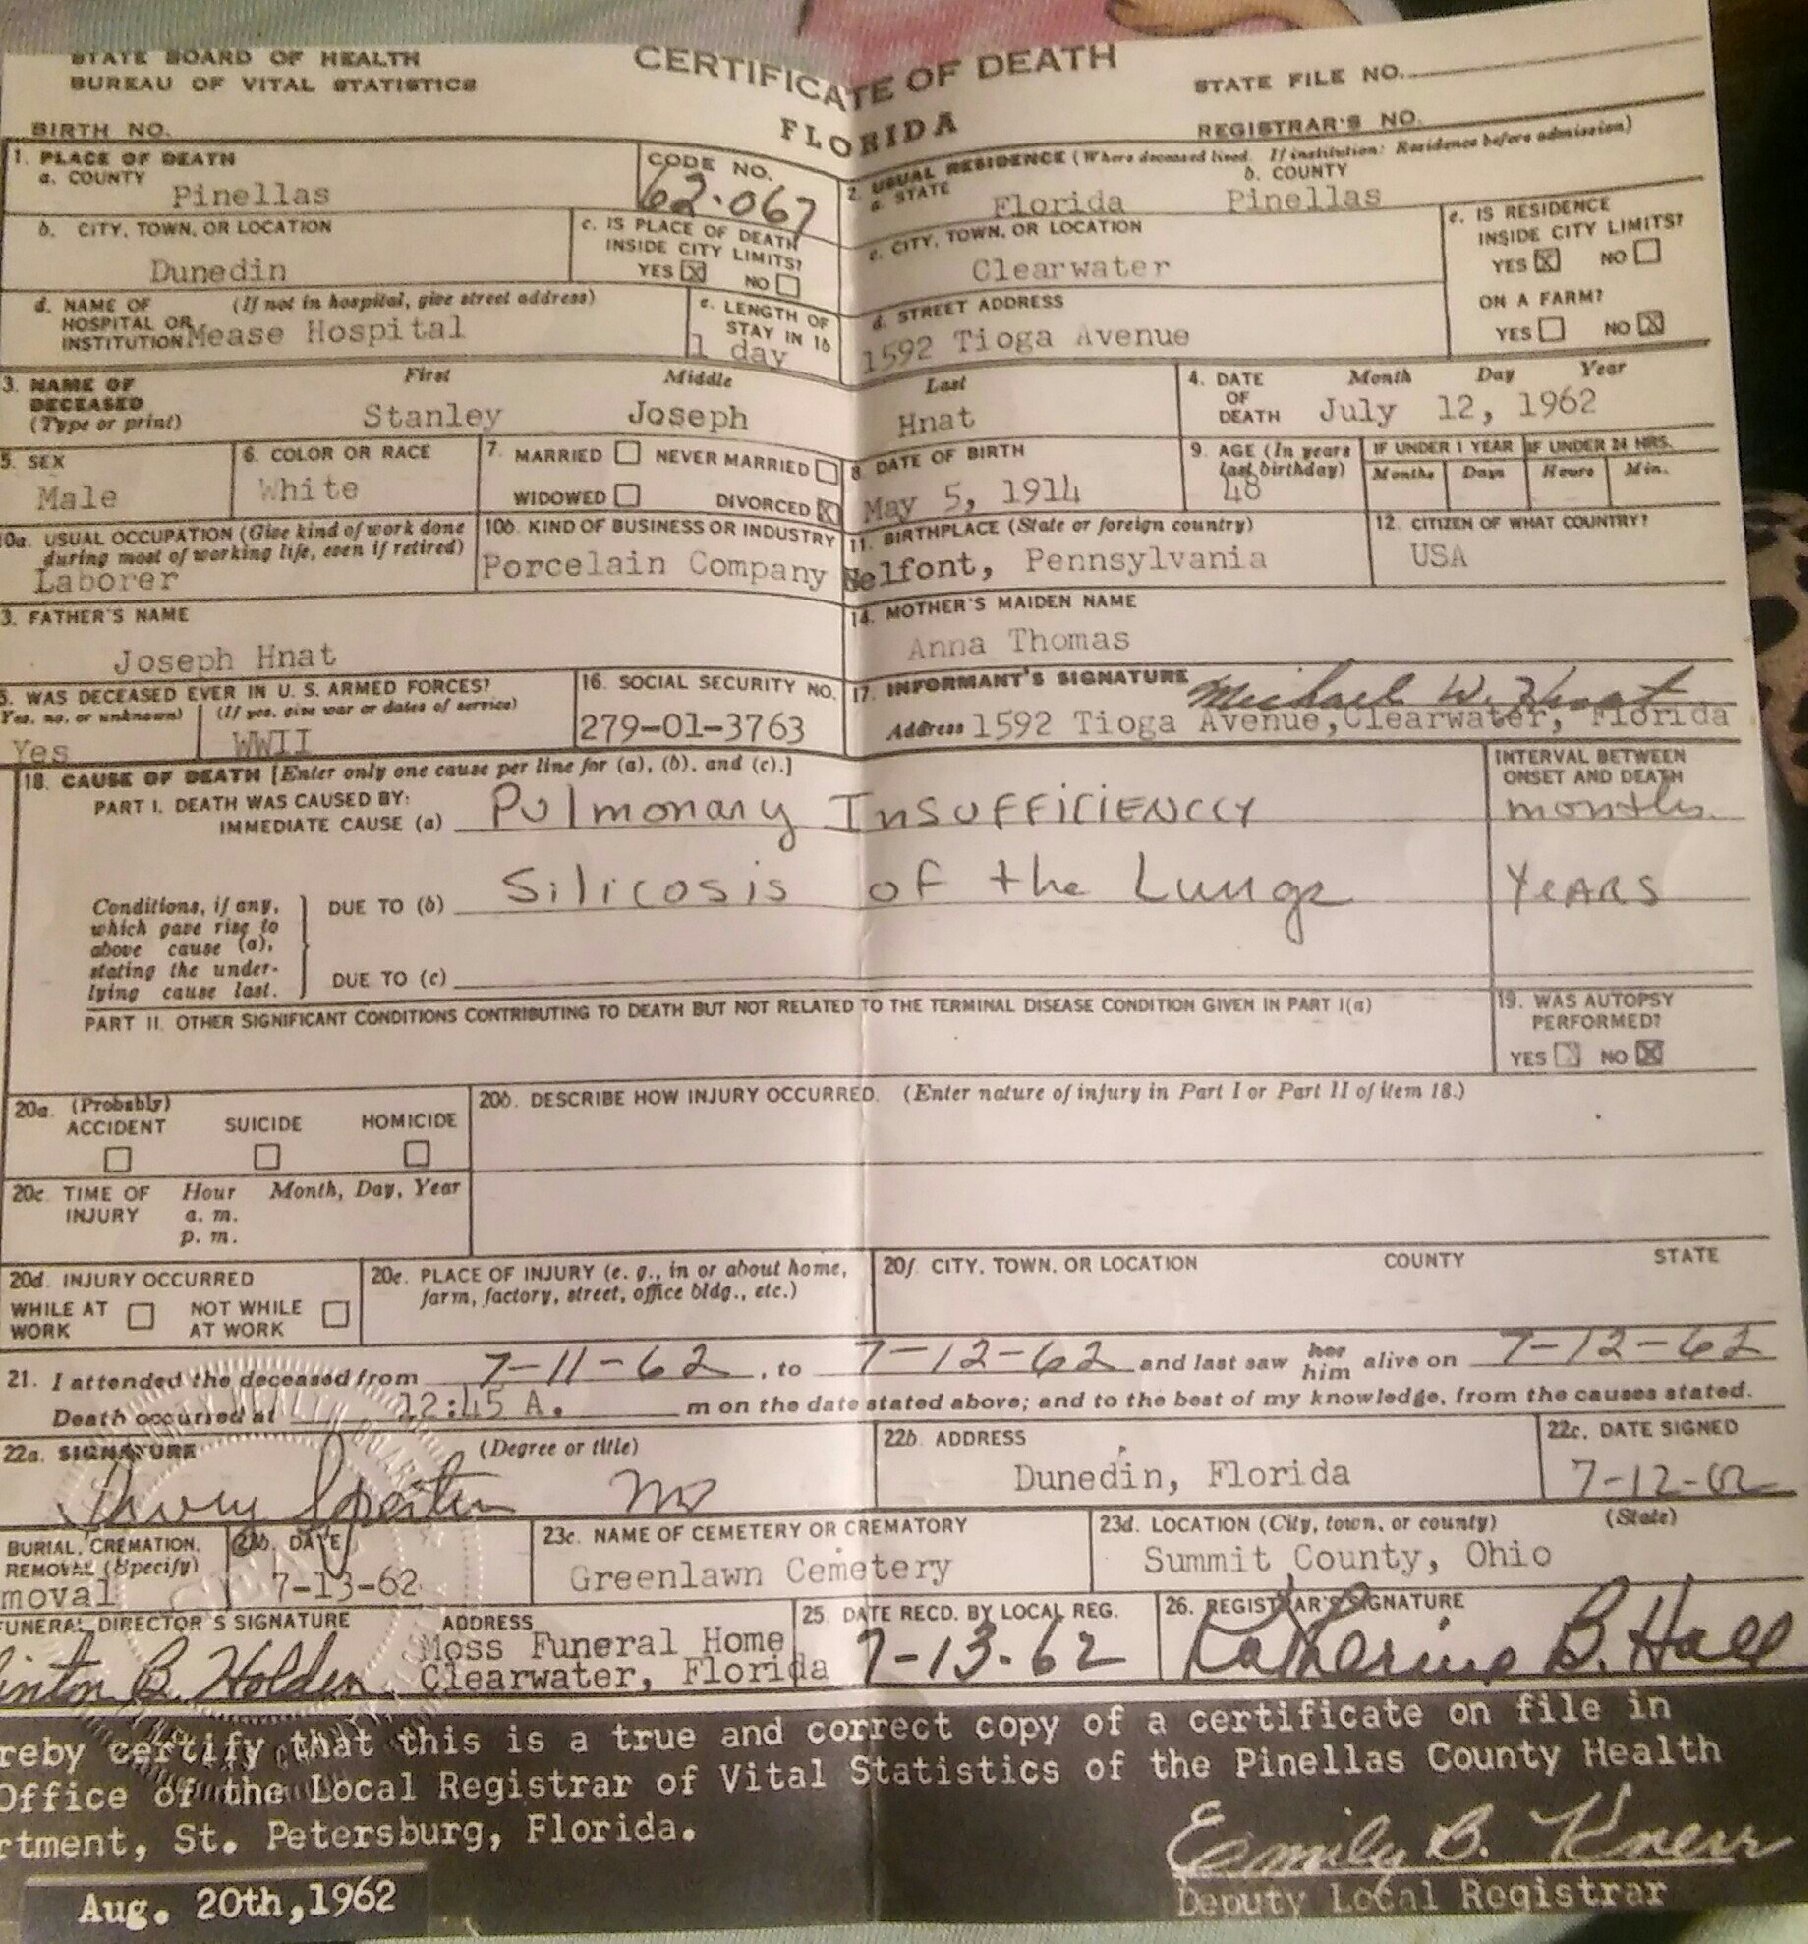 STATE BOARD OF HEALTH
BUREAU OF VITAL STATISTICS
CERTIFICATE OF DEATH
FLORIDA
STATE FILE NO.
REGISTRAR'S NO.
BIRTH NO.
1. PLACE OF DEATH
a. COUNTY
Pinellas
CODE NO.
62.067
2. USUAL RESIDENCE (Where deceased lived. If institution: Residence before admission)
a. STATE
Florida
b. COUNTY
Pinellas
b. CITY, TOWN, OR LOCATION
Dunedin
c. IS PLACE OF DEATH
INSIDE CITY LIMITS?
YES NO
c. CITY, TOWN, OR LOCATION
Clearwater
e. IS RESIDENCE
INSIDE CITY LIMITS?
YES NO
d. NAME OF (If not in hospital, give street address)
HOSPITAL OR
INSTITUTION Mease Hospital
e. LENGTH OF
STAY IN 1b
1 day
d. STREET ADDRESS
1592 Tioga Avenue
ON A FARM?
YES NO
3. NAME OF
DECEASED
(Type or print)
First Middle Last
Stanley Joseph Hnat
4. DATE
OF
DEATH
Month Day Year
July 12, 1962
5. SEX
Male
6. COLOR OR RACE
White
7. MARRIED NEVER MARRIED
WIDOWED DIVORCED
8. DATE OF BIRTH
May 5, 1914
9. AGE (In years
last birthday)
48
IF UNDER 1 YEAR IF UNDER 24 HRS.
Months Days Hours Min.
10a. USUAL OCCUPATION (Give kind of work done
during most of working life, even if retired)
Laborer
10b. KIND OF BUSINESS OR INDUSTRY
Porcelain Company
11. BIRTHPLACE (State or foreign country)
Belfont, Pennsylvania
12. CITIZEN OF WHAT COUNTRY?
USA
3. FATHER'S NAME
Joseph Hnat
14. MOTHER'S MAIDEN NAME
Anna Thomas
5. WAS DECEASED EVER IN U. S. ARMED FORCES?
Yes, no, or unknown) (If yes, give war or dates of service)
Yes WWII
16. SOCIAL SECURITY NO.
279-01-3763
17. INFORMANT'S SIGNATURE Michael W. Hnat
Address 1592 Tioga Avenue, Clearwater, Florida
18. CAUSE OF DEATH [Enter only one cause per line for (a), (b), and (c).]
INTERVAL BETWEEN
ONSET AND DEATH
PART I. DEATH WAS CAUSED BY:
IMMEDIATE CAUSE (a) Pulmonary INSUFFICIENCCY months.
Conditions, if any,
which gave rise to
above cause (a),
stating the under-
lying cause last.
DUE TO (b) Silicosis of the Lungs YEARS
DUE TO (c)
PART II. OTHER SIGNIFICANT CONDITIONS CONTRIBUTING TO DEATH BUT NOT RELATED TO THE TERMINAL DISEASE CONDITION GIVEN IN PART I(a)
19. WAS AUTOPSY
PERFORMED?
YES NO
20a. (Probably)
ACCIDENT SUICIDE HOMICIDE
20b. DESCRIBE HOW INJURY OCCURRED. (Enter nature of injury in Part I or Part II of item 18.)
20c. TIME OF Hour Month, Day, Year
INJURY a. m.
p. m.
20d. INJURY OCCURRED
WHILE AT NOT WHILE
WORK AT WORK
20e. PLACE OF INJURY (e. g., in or about home,
farm, factory, street, office bldg., etc.)
20f. CITY, TOWN, OR LOCATION COUNTY STATE
21. I attended the deceased from 7-11-62, to 7-12-62 and last saw her him alive on 7-12-62
Death occurred at 12:45 A. m on the date stated above; and to the best of my knowledge, from the causes stated.
22a. SIGNATURE (Degree or title)
MD
22b. ADDRESS
Dunedin, Florida
22c. DATE SIGNED
7-12-62
BURIAL, CREMATION,
REMOVAL (Specify)
moval
23b. DATE
7-13-62
23c. NAME OF CEMETERY OR CREMATORY
Greenlawn Cemetery
23d. LOCATION (City, town, or county) (State)
Summit County, Ohio
FUNERAL DIRECTOR'S SIGNATURE
inton B. Holden
ADDRESS
Moss Funeral Home
Clearwater, Florida
25. DATE RECD. BY LOCAL REG.
7-13-62
26. REGISTRAR'S SIGNATURE
Katherine B. Hall
reby certify that this is a true and correct copy of a certificate on file in
Office of the Local Registrar of Vital Statistics of the Pinellas County Health
rtment, St. Petersburg, Florida.
Emily B. Knerr
Deputy Local Registrar
Aug. 20th, 1962